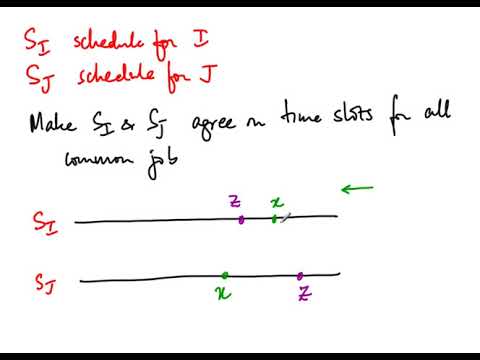 S_I schedule for I
S_J schedule for J
Make S_I & S_J agree on time slots for all
common job
z x
S_I
S_J
x z